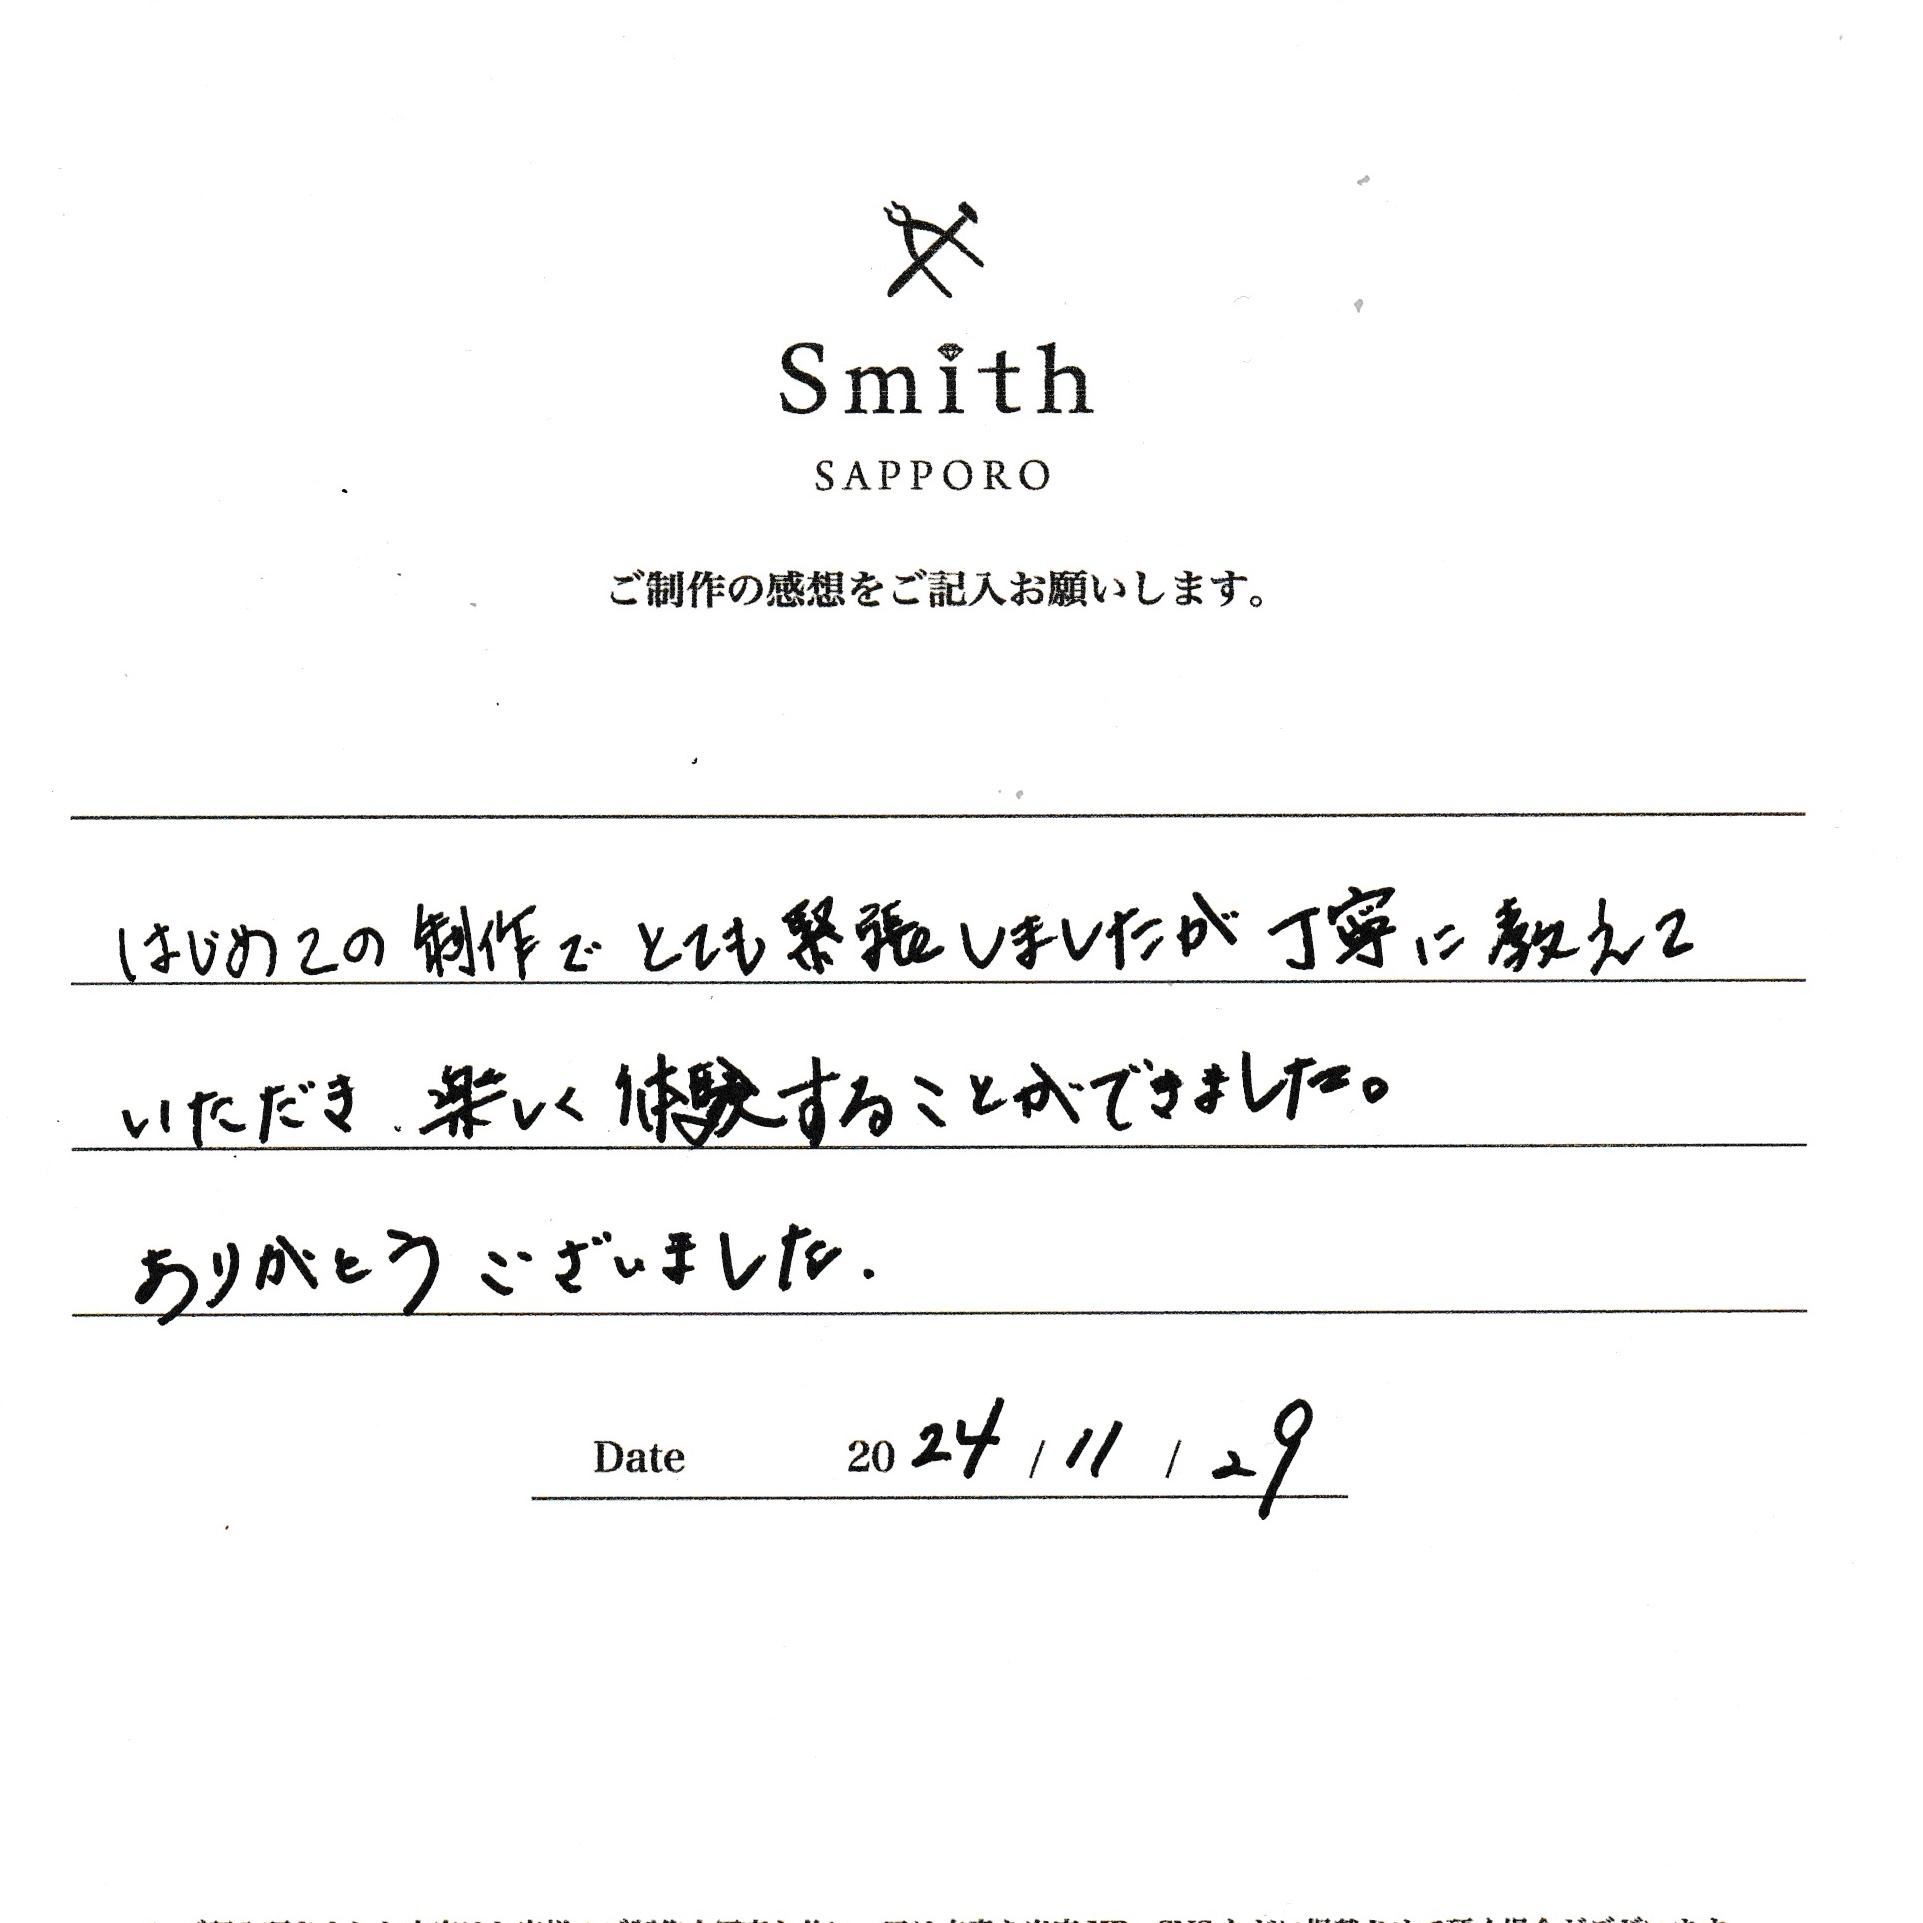 Smith
SAPPORO
ご制作の感想をご記入お願いします。
はじめての制作でとても緊張しましたが丁寧に教えて
いただき、楽しく体験することができました。
ありがとうございました.
Date 2024 / 11 / 29